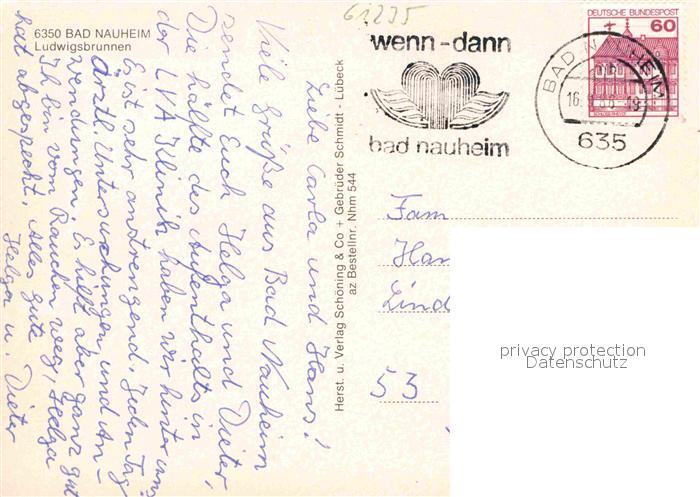 61235
6350 BAD NAUHEIM
Ludwigsbrunnen
wenn-dann
bad nauheim
DEUTSCHE BUNDESPOST
60
BAD NAUHEIM
635
Liebe Carla und Hans!
Viele Grüße aus Bad Nauheim
sendet Euch Helga und Dieter,
Die hälfte des Aufenthalts in
der LVA Klinik haben wir hinter uns
Es ist sehr anstrengend. Jeden Tag
Ärztl. Untersuchungen und An-
wendungen. Es hilft aber ganz gut
Ich bin vom Rauchen weg, Helga
hat abgespeckt. Alles gute
Helga u. Dieter
Herst. u. Verlag Schöning & Co + Gebrüder Schmidt · Lübeck
az Bestellnr. Nhm 544
Fam
Han
Lind
53
privacy protection
Datenschutz